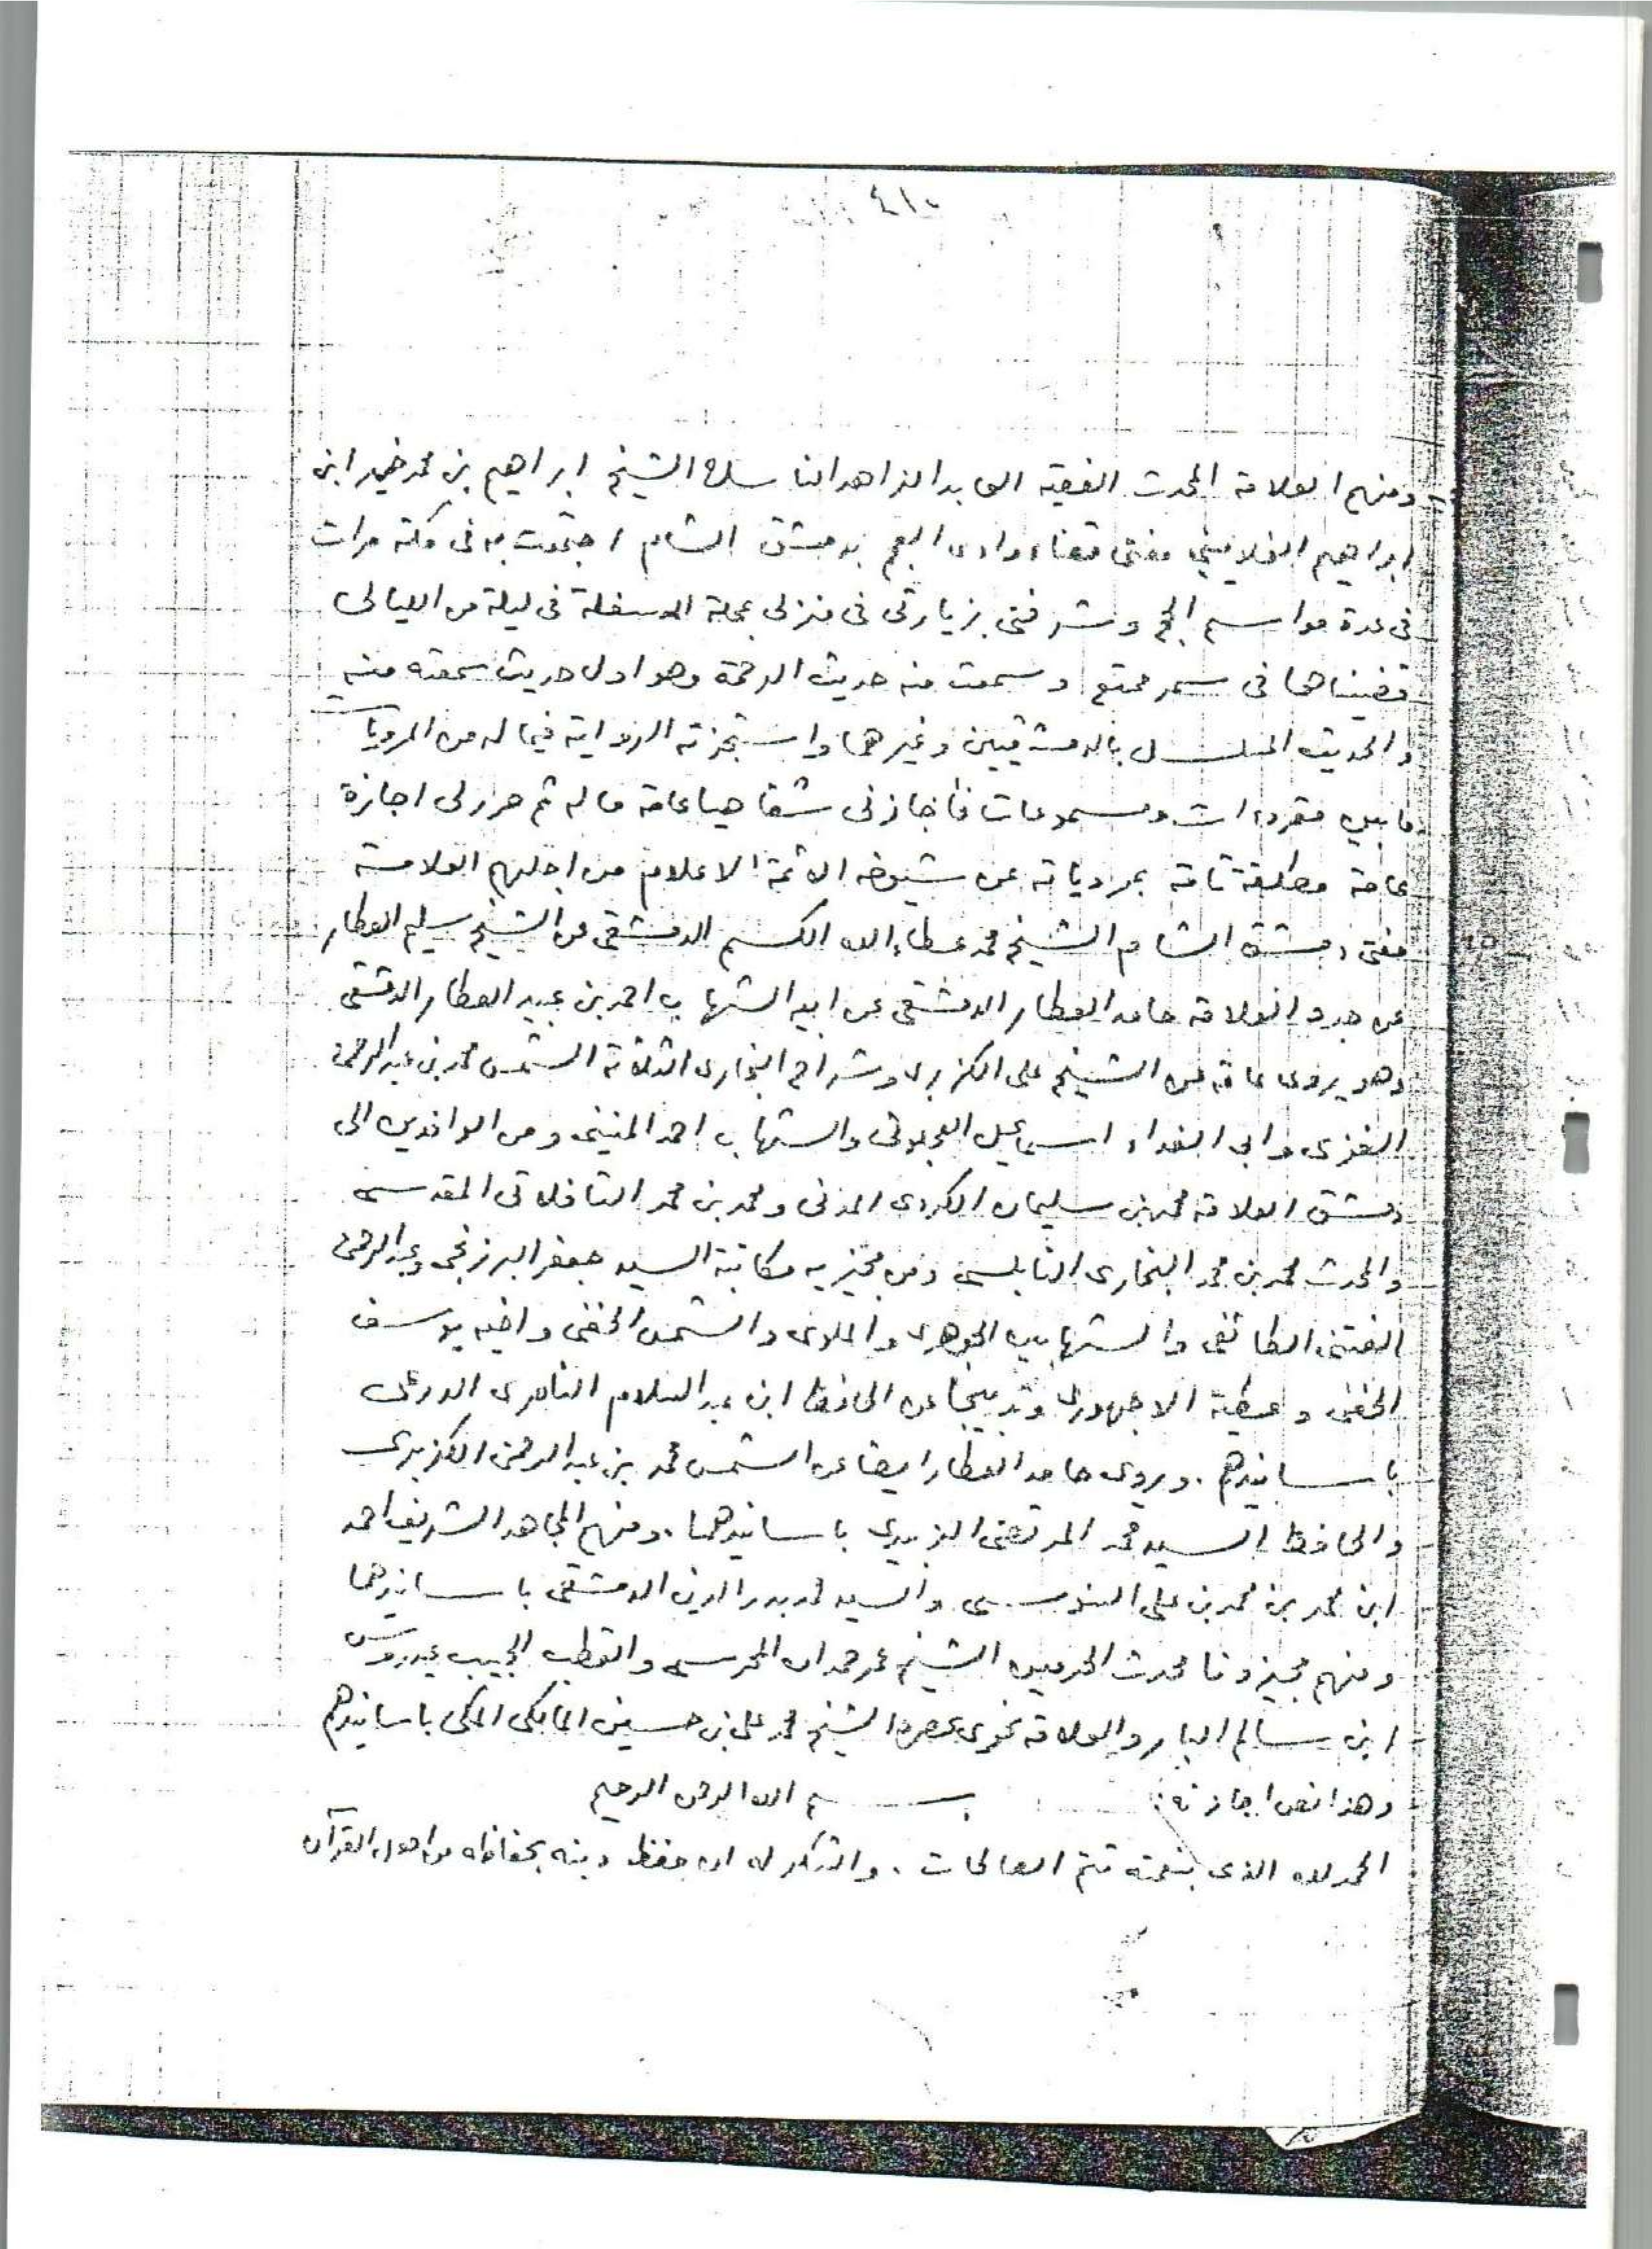 ٤١٠
ومنهم العلامة المحدث الفقيه العابد الزاهد الناسك الشيخ ابراهيم بن محمد خير ابن
ابراهيم الغلاييني مفتي قضاء وادى العجم بدمشق الشام اجتمعت به فى مكة مرات
فى عدة مواسم الحج وشرفنى بزيارتى فى منزلى بمحلة المسفلة فى ليلة من الليالى
قضيناها فى سمر ممتع وسمعت منه حديث الرحمة وهو اول حديث سمعته منه
والحديث المسلسل بالدمشقيين وغيرهما واستجزته الرواية فيما له من المرويات
ما بين مقروءات ومسموعات فأجازنى شفاهيا عامة ماله ثم حرر لى اجازة
عامة مطلقة تامة بمروياته عن شيوخه الائمة الاعلام من اجلهم العلامة
مفتى دمشق الشام الشيخ محمد عطاء الله الكسم الدمشقى عن الشيخ سليم العطار
عن جده العلامة حامد العطار الدمشقى عن ابيه الشهاب احمد بن عبيد العطار الدمشقى
وهو يروى عامة عن الشيخ على الكزبرى وشراح البخارى الثلاثة الشمس محمد بن عبد الرحمن
الغزى وابى الفداء اسماعيل العجلونى والشهاب احمد المنينى ومن الوافدين الى
دمشق العلامة محمد بن سليمان الكردى المدنى ومحمد بن محمد التافلاتى المقدسى
والمحدث محمد بن محمد البخارى النابلسى ومن مجيزيه مكاتبة السيد جعفر البرزنجى وعبد الرحمن
الفتنى الطائفى والشهابين الجوهرى والملوى والشمس الحفنى واخيه يوسف
الحفنى وعطية الاجهورى وتدبيجا عن الحافظ ابن عبد السلام الناصرى الدرعى
باسانيدهم . ويروى حامد العطار ايضا عن الشمس محمد بن عبد الرحمن الكزبرى
والحافظ السيد محمد المرتضى الزبيدى باسانيدهما . ومنهم المجاهد الشريف احمد
ابن محمد بن محمد بن على السنوسى والسيد محمد بدر الدين الدمشقى باسانيدهما
ومنهم مجيزونا محدث الحرمين الشيخ عمر حمدان المحرسى والقطب الحبيب عيدروس
ابن سالم البار والعلامة نحوى عصره الشيخ محمد على بن حسين المالكى المكى باسانيدهم
وهذا نص اجازته : بسم الله الرحمن الرحيم
الحمد لله الذى بنعمته تتم الصالحات . والشكر له ان حفظ دينه بحفاظه من اهل القرآن